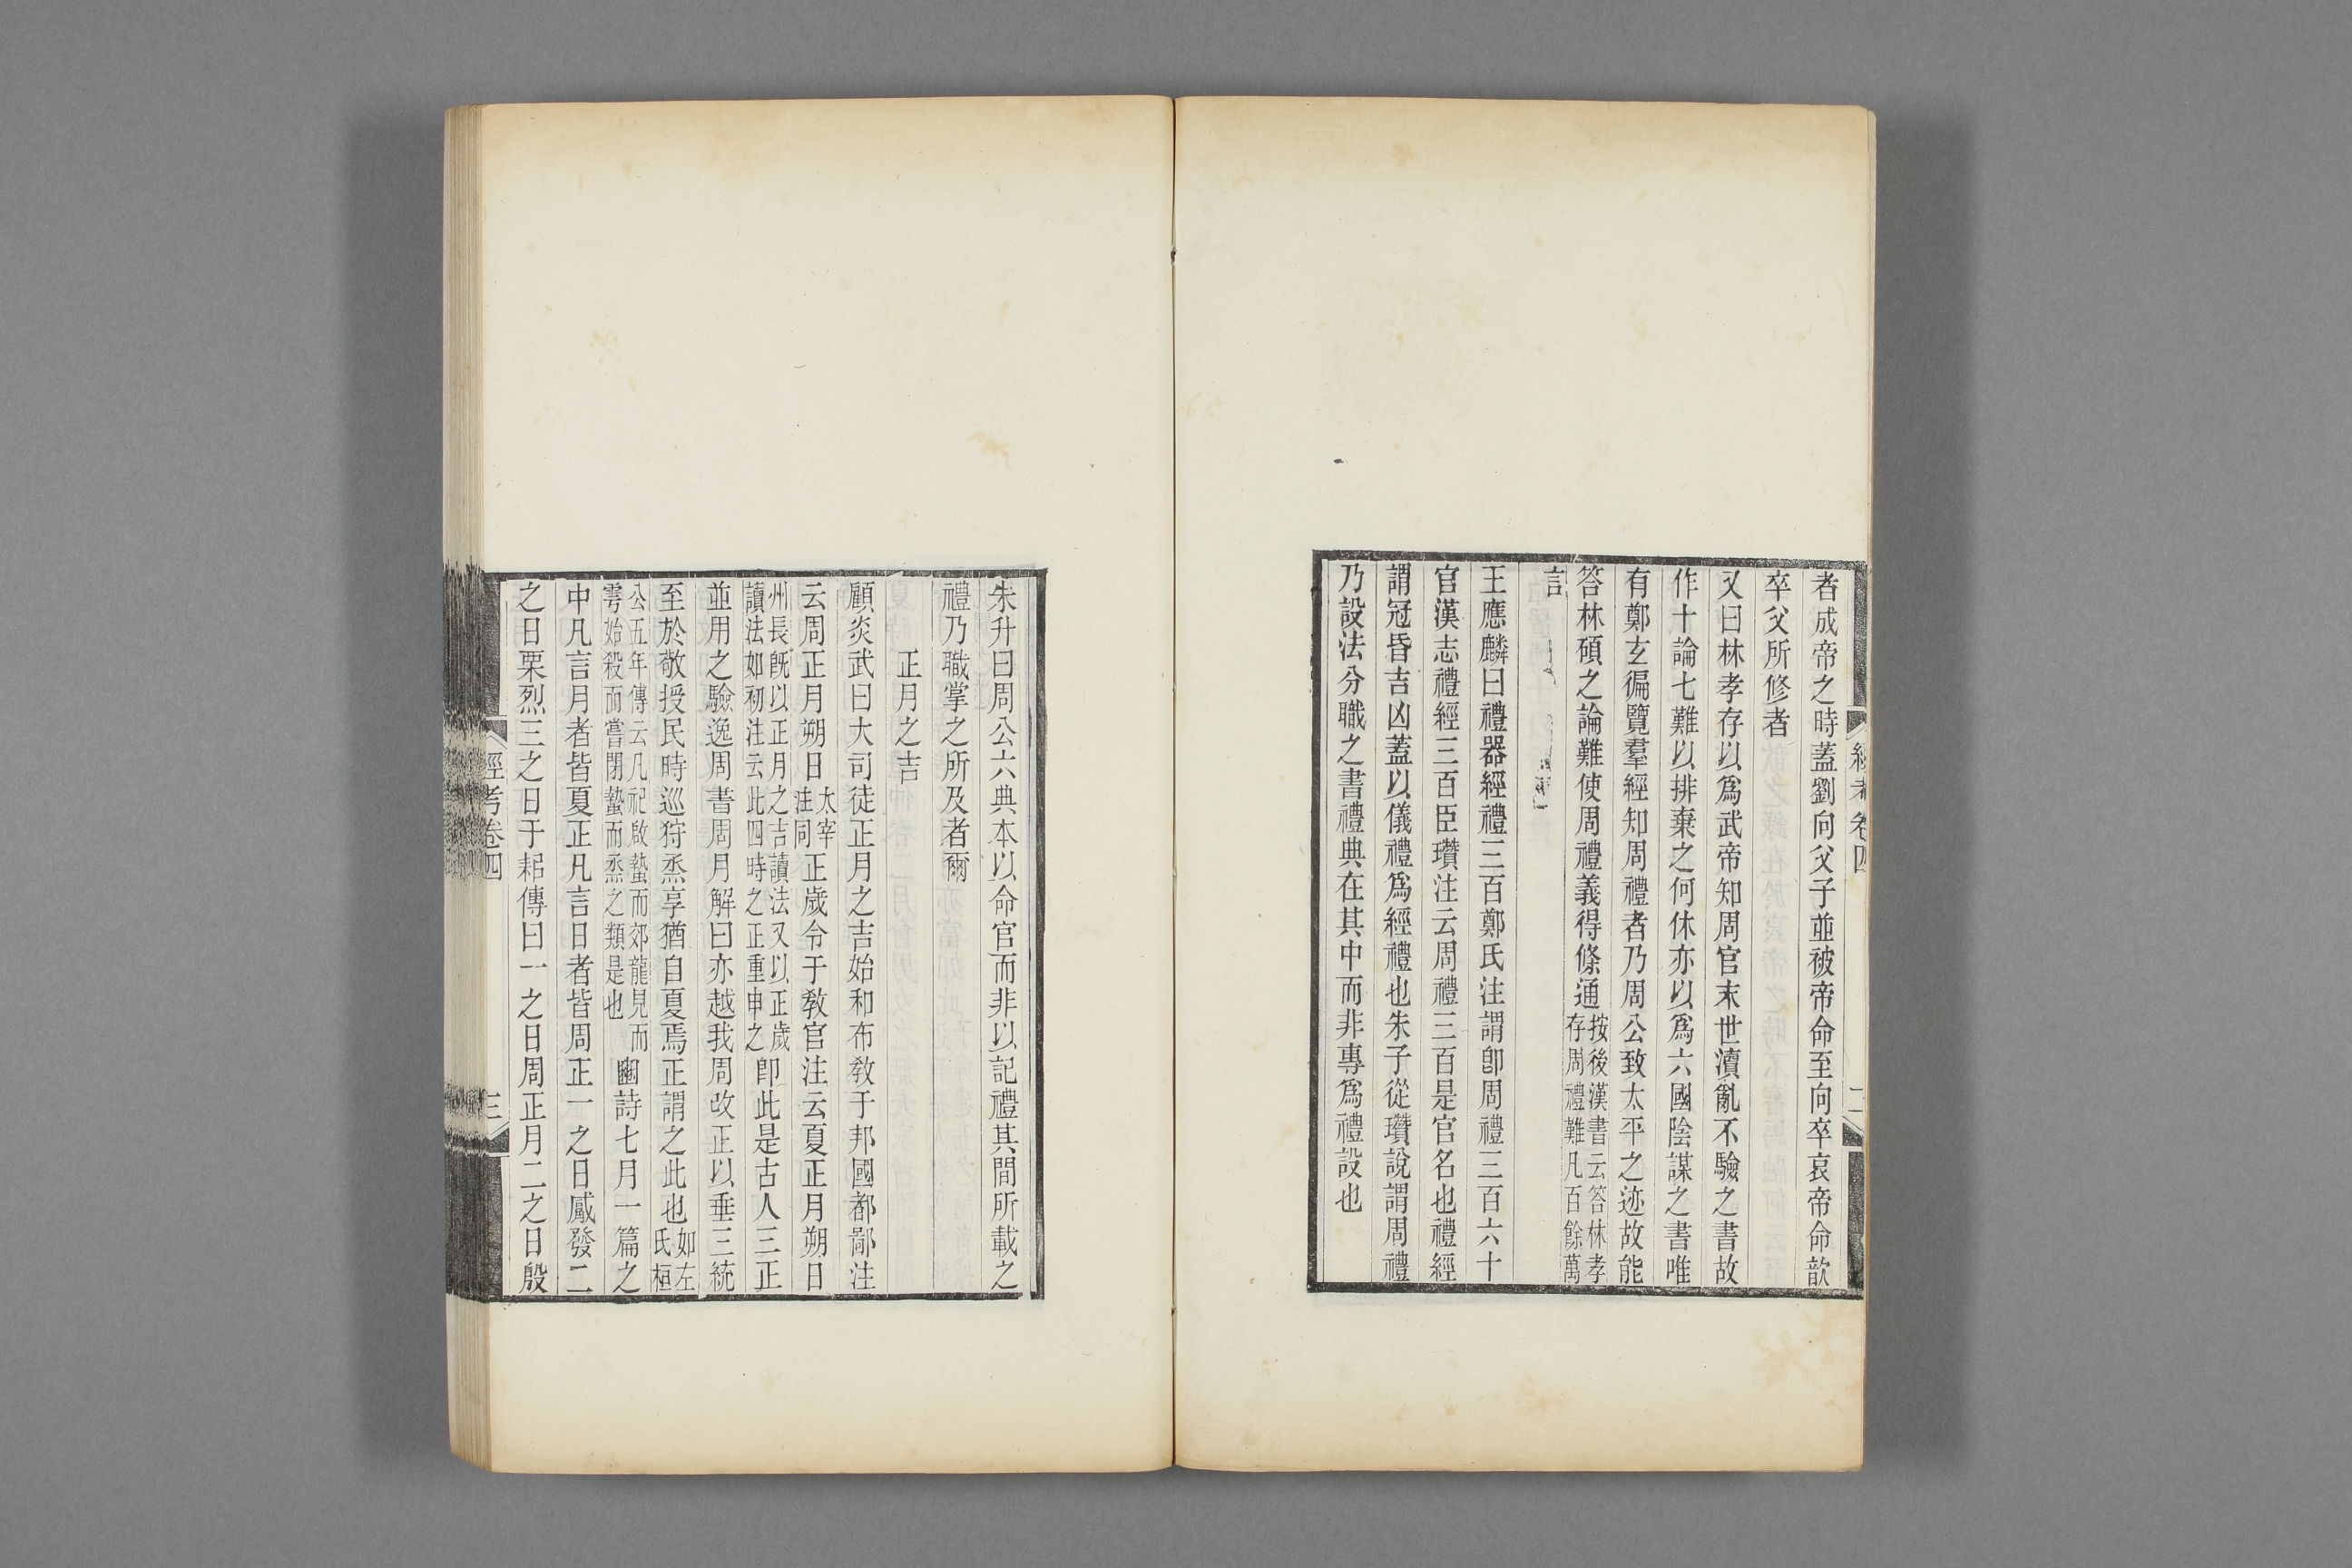 者成帝之時蓋劉向父子並被帝命至向卒哀帝命歆
卒父所修者
又曰林孝存以爲武帝知周官末世瀆亂不驗之書故
作十論七難以排棄之何休亦以爲六國陰謀之書唯
有鄭玄徧覽羣經知周禮者乃周公致太平之迹故能
答林碩之論難使周禮義得條通按後漢書云答林孝存周禮難凡百餘萬
言
王應麟曰禮器經禮三百鄭氏注謂卽周禮三百六十
官漢志禮經三百臣瓚注云周禮三百是官名也禮經
謂冠昏吉凶蓋以儀禮爲經禮也朱子從瓚說謂周禮
乃設法分職之書禮典在其中而非專爲禮設也
經考卷四
二
朱升曰周公六典本以命官而非以記禮其間所載之
禮乃職掌之所及者爾
正月之吉
顧炎武曰大司徒正月之吉始和布敎于邦國都鄙注
云周正月朔日太宰注同正歲令于敎官注云夏正月朔日
州長旣以正月之吉讀法又以正歲讀法如初注云此四時之正重申之卽此是古人三正
並用之驗逸周書周月解曰亦越我周改正以垂三統
至於敬授民時巡狩烝享猶自夏焉正謂之此也如左氏桓
公五年傳云凡祀啟蟄而郊龍見而雩始殺而嘗閉蟄而烝之類是也豳詩七月一篇之
中凡言月者皆夏正凡言日者皆周正一之日觱發二
之日栗烈三之日于耜傳曰一之日周正月二之日殷
經考卷四
三